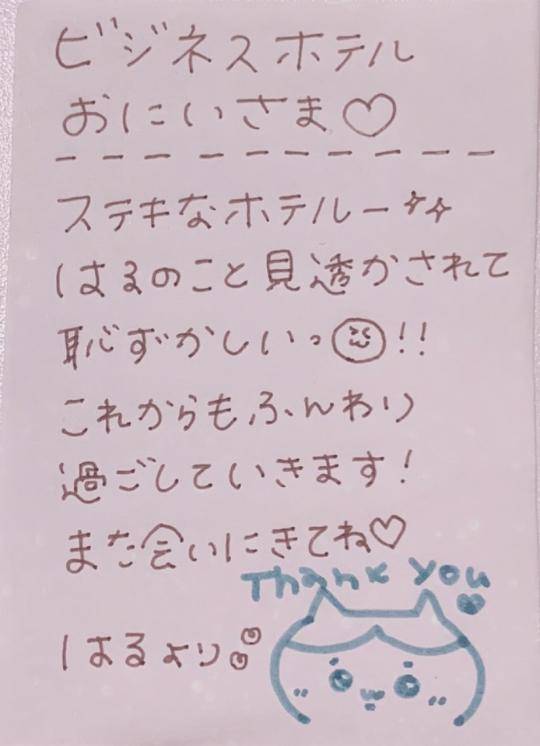 ビジネスホテル
おにいさま♡
ステキなホテルー✨
はるのこと見透かされて
恥ずかしいっ!!
これからもふんわり
過ごしていきます!
また会いにきてね♡
Thank you
はるより